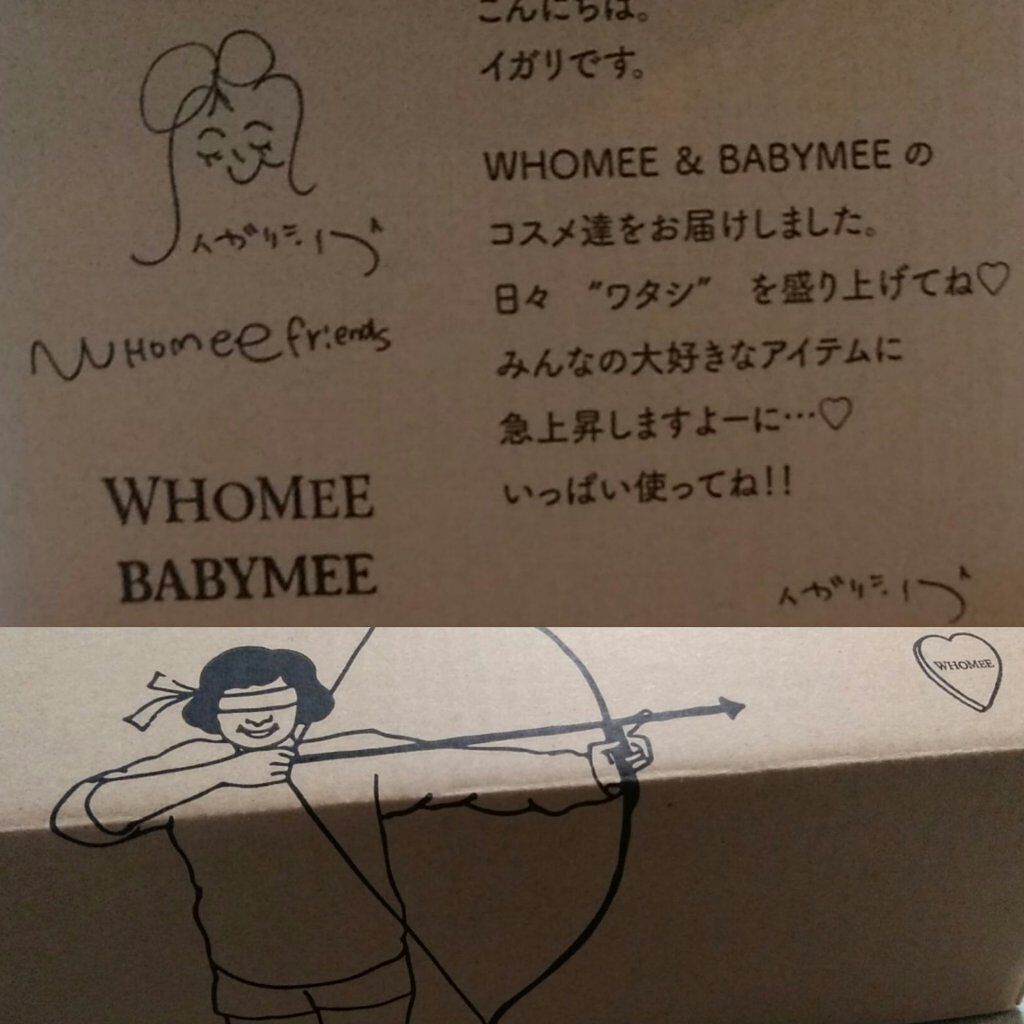 こんにちは。
イガリです。
WHOMEE & BABYMEE の
コスメ達をお届けしました。
日々 “ワタシ” を盛り上げてね♡
みんなの大好きなアイテムに
急上昇しますよーに…♡
いっぱい使ってね!!
イガリシノブ
イガリシノブ
WHomee friends
WHOMEE
BABYMEE
WHOMEE